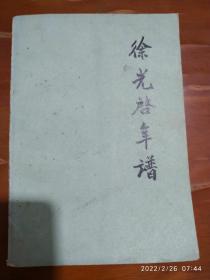 徐光啓年谱
2022/2/26 07:44